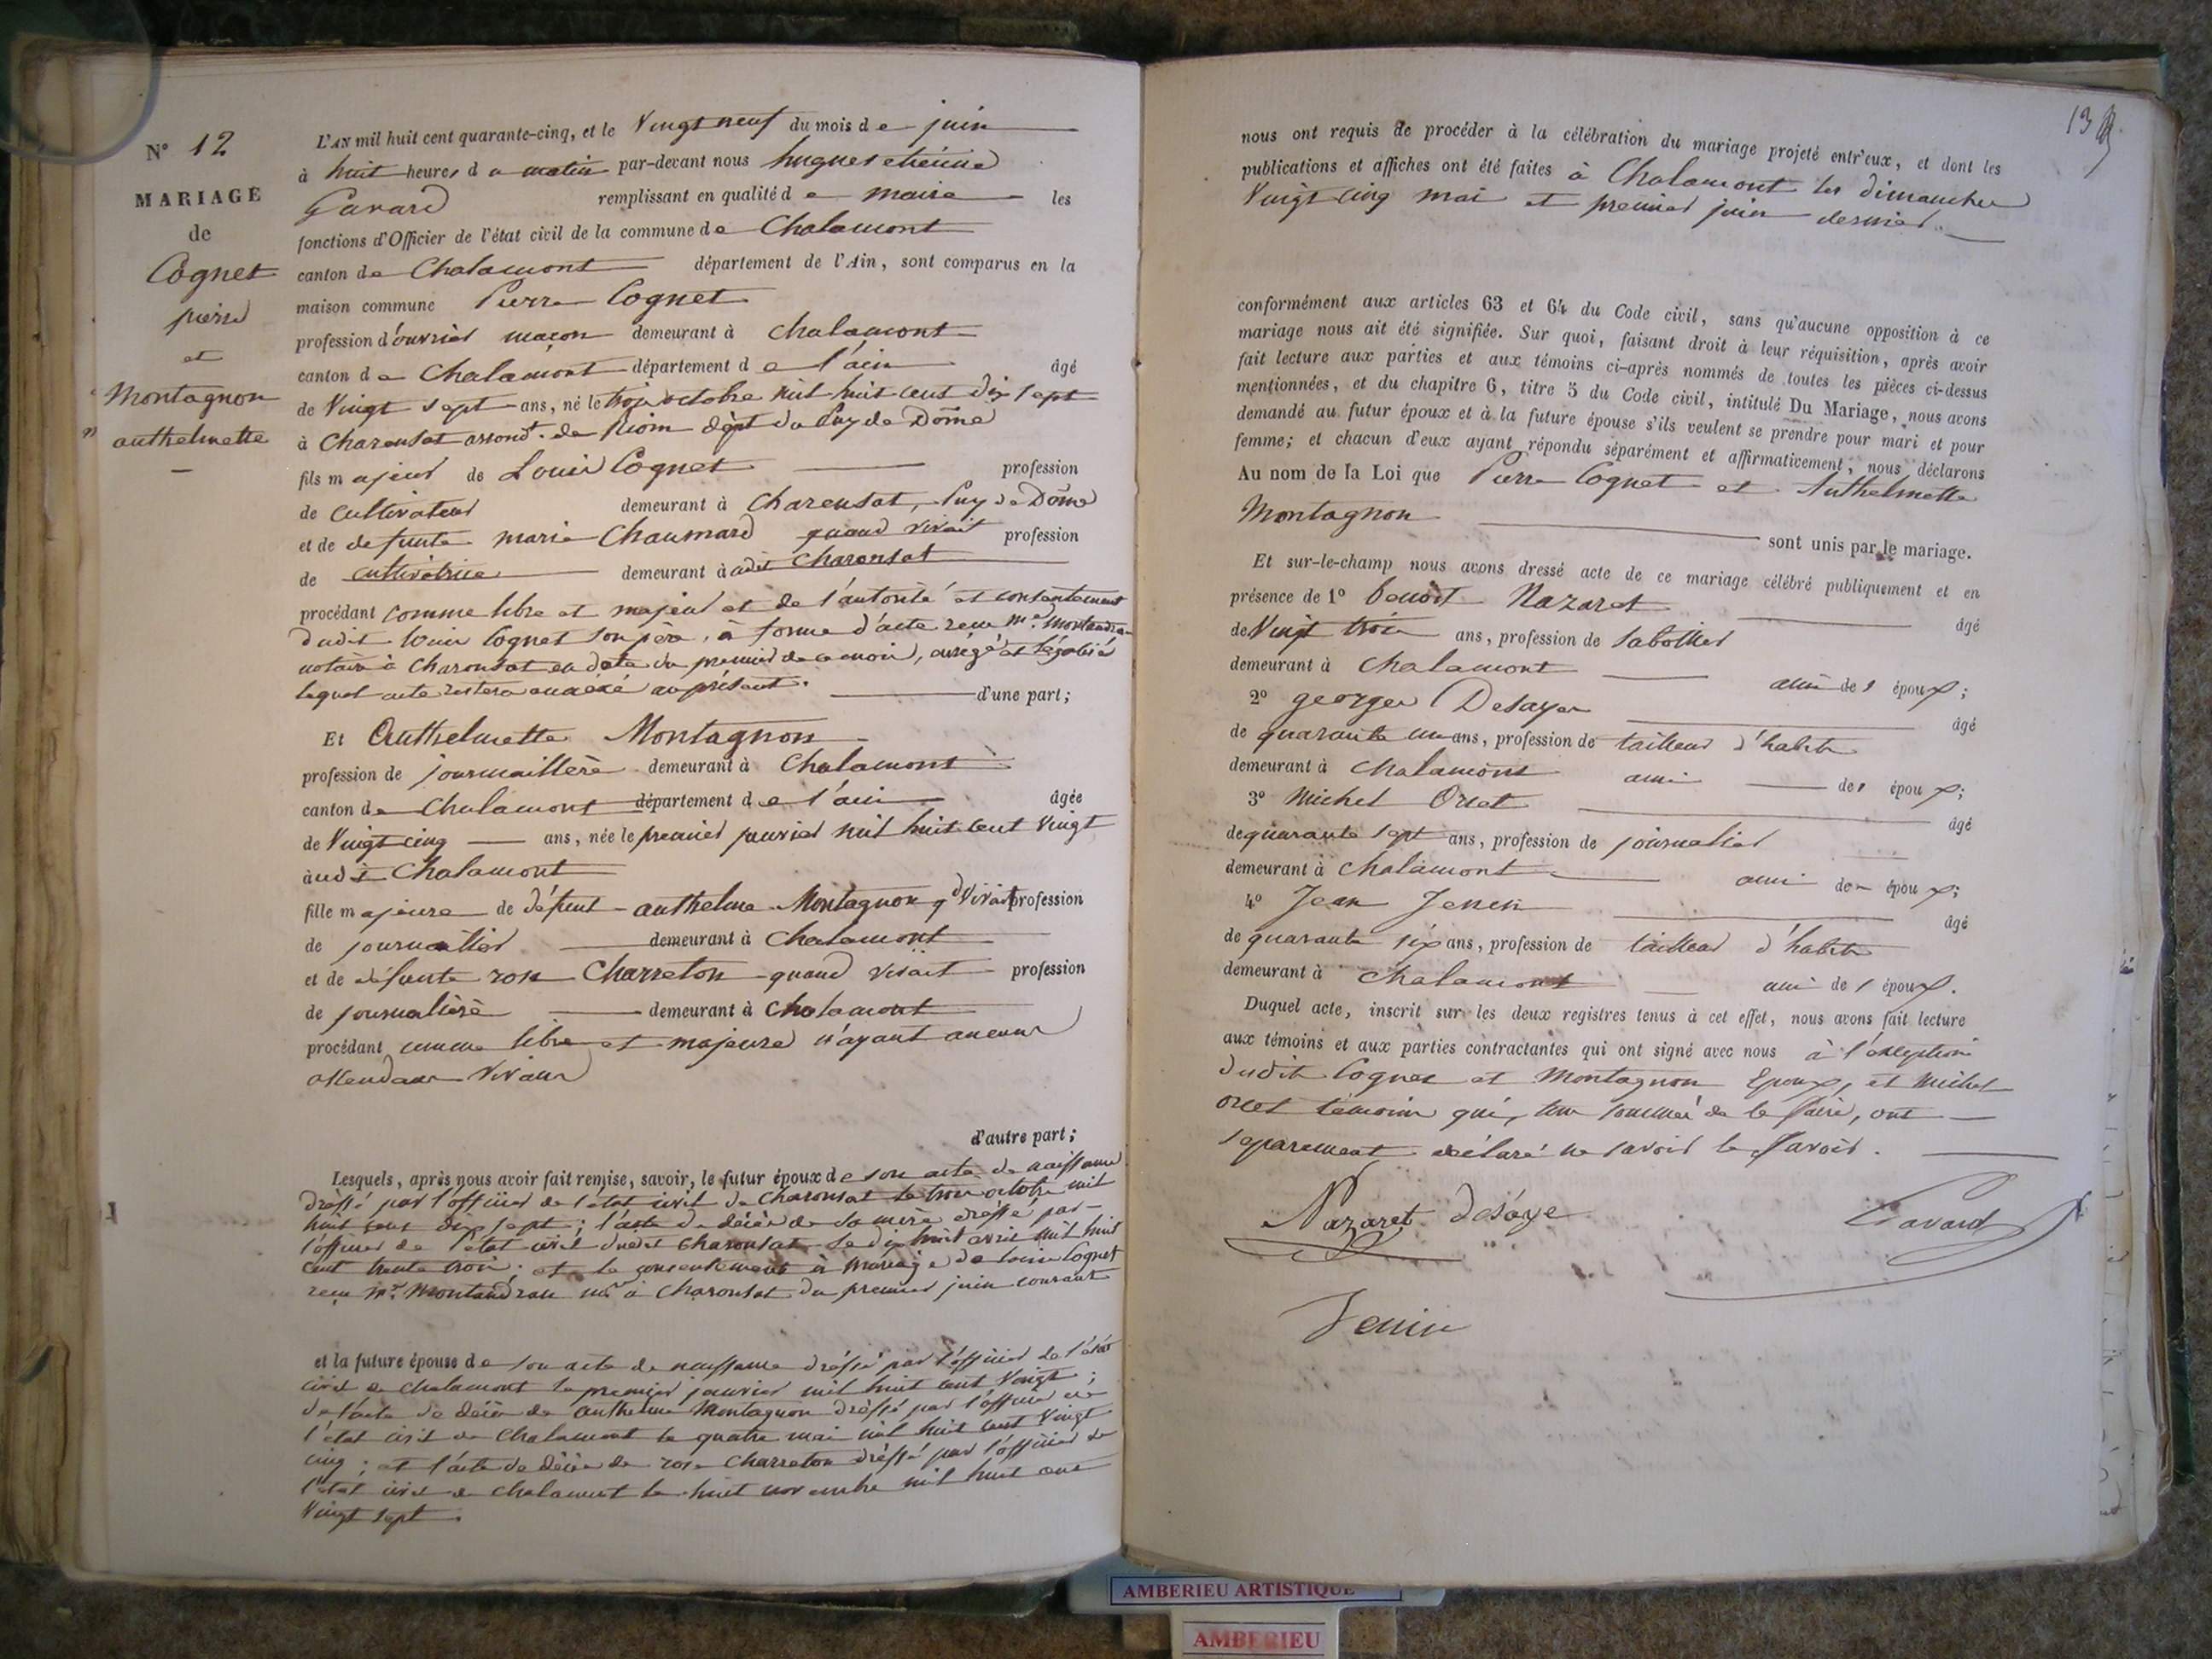 N° 12
MARIAGE
de
Cognet
pierre
et
Montagnon
anthelmette
L'AN mil huit cent quarante-cinq, et le Vingt neuf du mois de juin
à huit heures du matin par-devant nous hugues etienne
Gavard remplissant en qualité de maire les
fonctions d'Officier de l'état civil de la commune de Chalamont
canton de Chalamont département de l'Ain, sont comparus en la
maison commune Pierre Cognet
profession d'ouvrier maçon demeurant à Chalamont
canton de Chalamont département de l'ain âgé
de Vingt sept ans, né le trois octobre mil huit cent dix sept
à Charensat arrondt. de Riom dépt du Puy de Dôme
fils majeur de Louis Cognet profession
de cultivateur demeurant à Charensat, Puy de Dôme
et de defunte marie Chaumard quand vivait profession
de cultivatrice demeurant à adit Charensat
procédant comme libre et majeur et de l'autorité et consentement
dudit louis Cognet son père, à forme d'acte reçu me
notaire à Charensat en date du premier de ce mois, enrégé et légalisé
lequel acte restera annéxé au présent. d'une part;
Et Anthelmette Montagnon
profession de journaillère demeurant à Chalamont
canton de Chalamont département de l'ain âgée
de Vingt cinq ans, née le premier janvier mil huit cent Vingt
audit Chalamont
fille majeure de défunt anthelme Montagnon qd Vivait profession
de journalier demeurant à Chalamont
et de défunte rose Charreton quand vivait profession
de journalière demeurant à Chalamont
procédant comme libre et majeure n'ayant aucuns
assendans Vivans
d'autre part;
Lesquels, après nous avoir fait remise, savoir, le futur époux de son acte de naissance
dréssé par l'officier de l'état civil de Charensat le trois octobre mil
huit cent dix sept; l'acte de décès de sa mère dréssé par
l'officier de l'état civil dudit Charensat le dix huit avril mil huit
cent trente trois; et le consentement à mariage de louis Cognet
reçu me nre à Charensat du premier juin courant
et la future épouse de son acte de naissance dréssé par l'officier de l'état
civil de Chalamont le premier janvier mil huit cent Vingt;
de l'acte de décès de anthelme Montagnon dréssé par l'officier de
l'état civil de Chalamont le quatre mai mil huit cent Vingt
cinq; et l'acte de décès de rose Charreton dréssé par l'officier de
l'état civil de Chalamont le huit novembre mil huit cent
Vingt sept.
13
nous ont requis de procéder à la célébration du mariage projeté entr'eux, et dont les
publications et affiches ont été faites à Chalamont les dimanches
Vingt cinq mai et premier juin dernier.
conformément aux articles 63 et 64 du Code civil, sans qu'aucune opposition à ce
mariage nous ait été signifiée. Sur quoi, faisant droit à leur réquisition, après avoir
fait lecture aux parties et aux témoins ci-après nommés de toutes les pièces ci-dessus
mentionnées, et du chapitre 6, titre 5 du Code civil, intitulé Du Mariage, nous avons
demandé au futur époux et à la future épouse s'ils veulent se prendre pour mari et pour
femme; et chacun d'eux ayant répondu séparément et affirmativement, nous déclarons
Au nom de la Loi que Pierre Cognet et Anthelmette
Montagnon sont unis par le mariage.
Et sur-le-champ nous avons dressé acte de ce mariage célébré publiquement et en
présence de 1° benoit Nazaret âgé
de Vingt trois ans, profession de sabotier
demeurant à Chalamont ami des époux;
2° georges Desaye âgé
de quarante un ans, profession de tailleur d'habits
demeurant à Chalamont ami des époux;
3° Michel Orset âgé
de quarante sept ans, profession de journalier
demeurant à Chalamont ami des époux;
4° Jean Jenin âgé
de quarante six ans, profession de tailleur d'habits
demeurant à Chalamont ami des époux.
Duquel acte, inscrit sur les deux registres tenus à cet effet, nous avons fait lecture
aux témoins et aux parties contractantes qui ont signé avec nous à l'exception
dudit Cognet et Montagnon Epoux, et Michel
orset témoin qui, de le faire, ont
séparement déclaré ne savoir le
Nazaret désaye Gavard
Jenin
AMBERIEU ARTISTIQUE
AMBERIEU